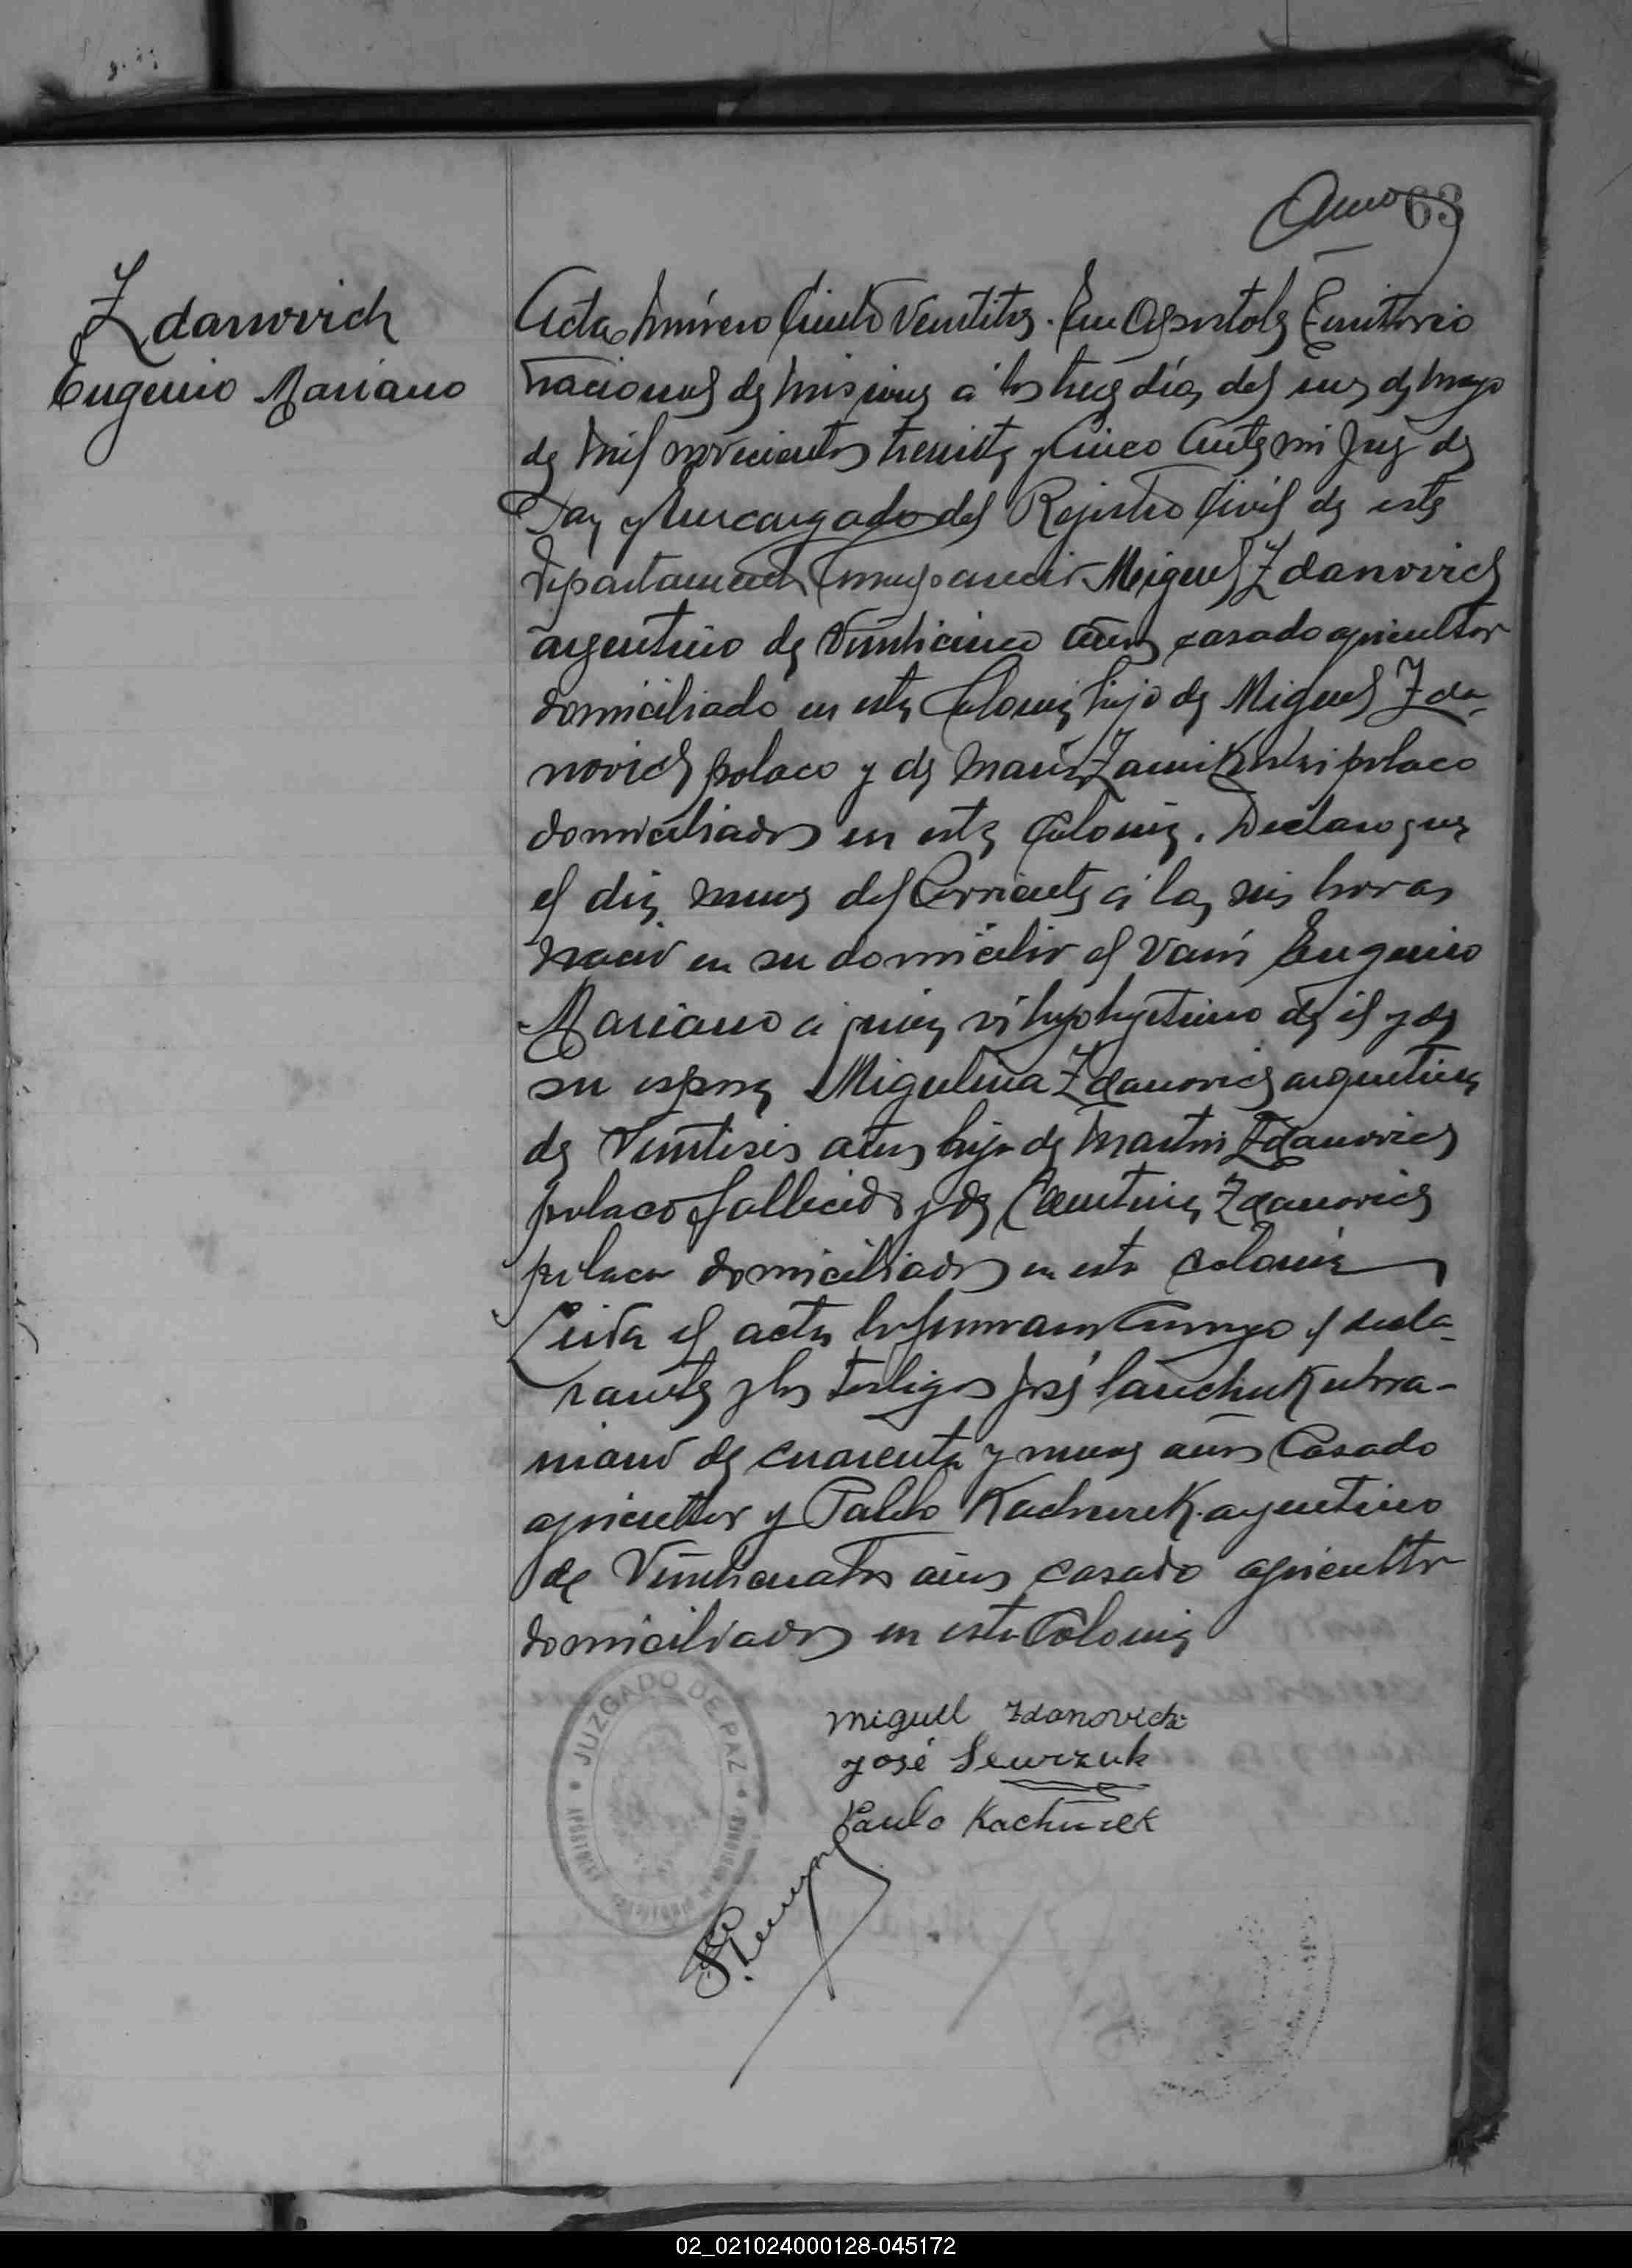 63
Zdanovich
Eugenio Mariano
Acta Número Ciento Ventitres. En Apostoles Territorio
nacional de Misiones a los trece días del mes de mayo
de mil novecientos treinta y Cinco Ante mi Juez de
Paz y Encargado del Rejistro Civil de este
Departamento Compareció Miguel Zdanovich
argentino de Veinticinco años casado agricultor
domiciliado en esta Colonia hijo de Miguel Zda-
novich polaco y de María polaco
domiciliados en esta Colonia. Declaro que
el día nueve del Corriente a las seis horas
nació en su domicilio el varón Eugenio
Mariano a quien vi hijo lejitimo de él y de
su esposa Migulina Zdanovich argentina
de Veintiseis años hija de Martin Zdanovich
polaco fallecido y de Zdanovich
polaca domiciliados en esta colonia
Leida el acta la firmaron Conmigo el decla-
rante y los testigos José ukra-
niano de cuarenta y nueve años Casado
agricultor y Pablo Kachurek argentino
de Veinticuatro años casado agricultor
domiciliados en esta Colonia
JUZGADO DE PAZ
APOSTOLES
Miguel Zdanovich
José Sewrzuk
Paulo Kachurek
02_021024000128-045172